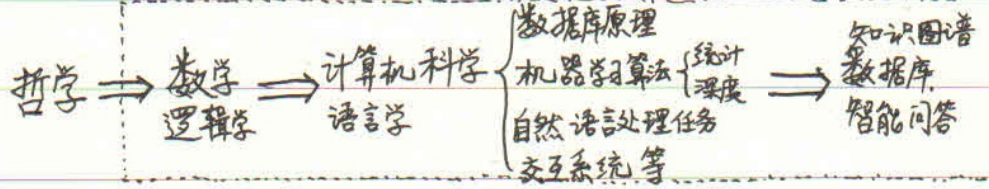 哲学 ⇒ 数学 ⇒ 计算机科学
逻辑学
语言学
数据库原理
机器学习算法 { 统计
深度
自然语言处理任务
交互系统等
⇒ 知识图谱
数据库
智能问答